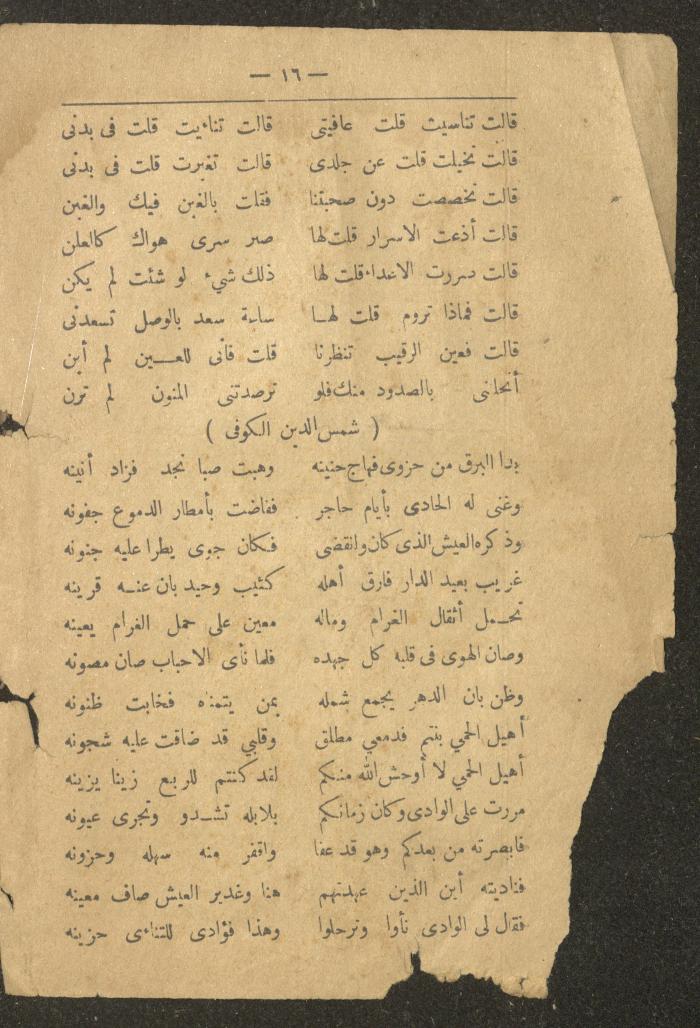 — ١٦ —
قالت تناسيت قلت عافيتى قالت تناءيت قلت فى بدنى
قالت تخيلت قلت عن جلدى قالت تغيرت قلت فى بدنى
قالت تخصصت دون صحبتنا فقلت بالغبن فيك والغبن
قالت أذعت الاسرار قلت لها صبر سرى هواك كالعلن
قالت سررت الاعداء قلت لها ذلك شيء لو شئت لم يكن
قالت فماذا تروم قلت لهـا ساعة سعد بالوصل تسعدنى
قالت فعين الرقيب تنظرنا قلت فانى للعـــين لم أبن
أنحلتنى بالصدود منك فلو ترصدتنى المنون لم ترن
( شمس الدين الكوفى )
بدا البرق من حزوى فهاج حنينه وهبت صبا نجد فزاد أنينه
وغنى له الحادى بأيام حاجر ففاضت بأمطار الدموع جفونه
وذكره العيش الذى كان وانقضى فكان جوى يطرا عليه جنونه
غريب بعيد الدار فارق أهله كئيب وحيد بان عنـه قرينه
تحـمل أثقال الغرام وماله معين على حمل الغرام يعينه
وصان الهوى فى قلبه كل جهده فلما نأى الاحباب صان مصونه
وظن بان الدهر يجمع شمله بمن يتمناه فخابت ظنونه
أهيل الحمي بنتم فدمعي مطلق وقلبي قد ضاقت عليه شجونه
أهيل الحمي لا أوحش الله منكم لقد كنتم للربع زينا يزينه
مررت على الوادى وكان زمانكم بلابله تشـدو وتجرى عيونه
فابصرته من بعدكم وهو قد عفا واقفر منه سهله وحزونه
فناديته أين الذين عهدتهم هنا وغدير العيش صاف معينه
فقال لى الوادى نأوا وترحلوا وهذا فؤادى للتناءى حزينه